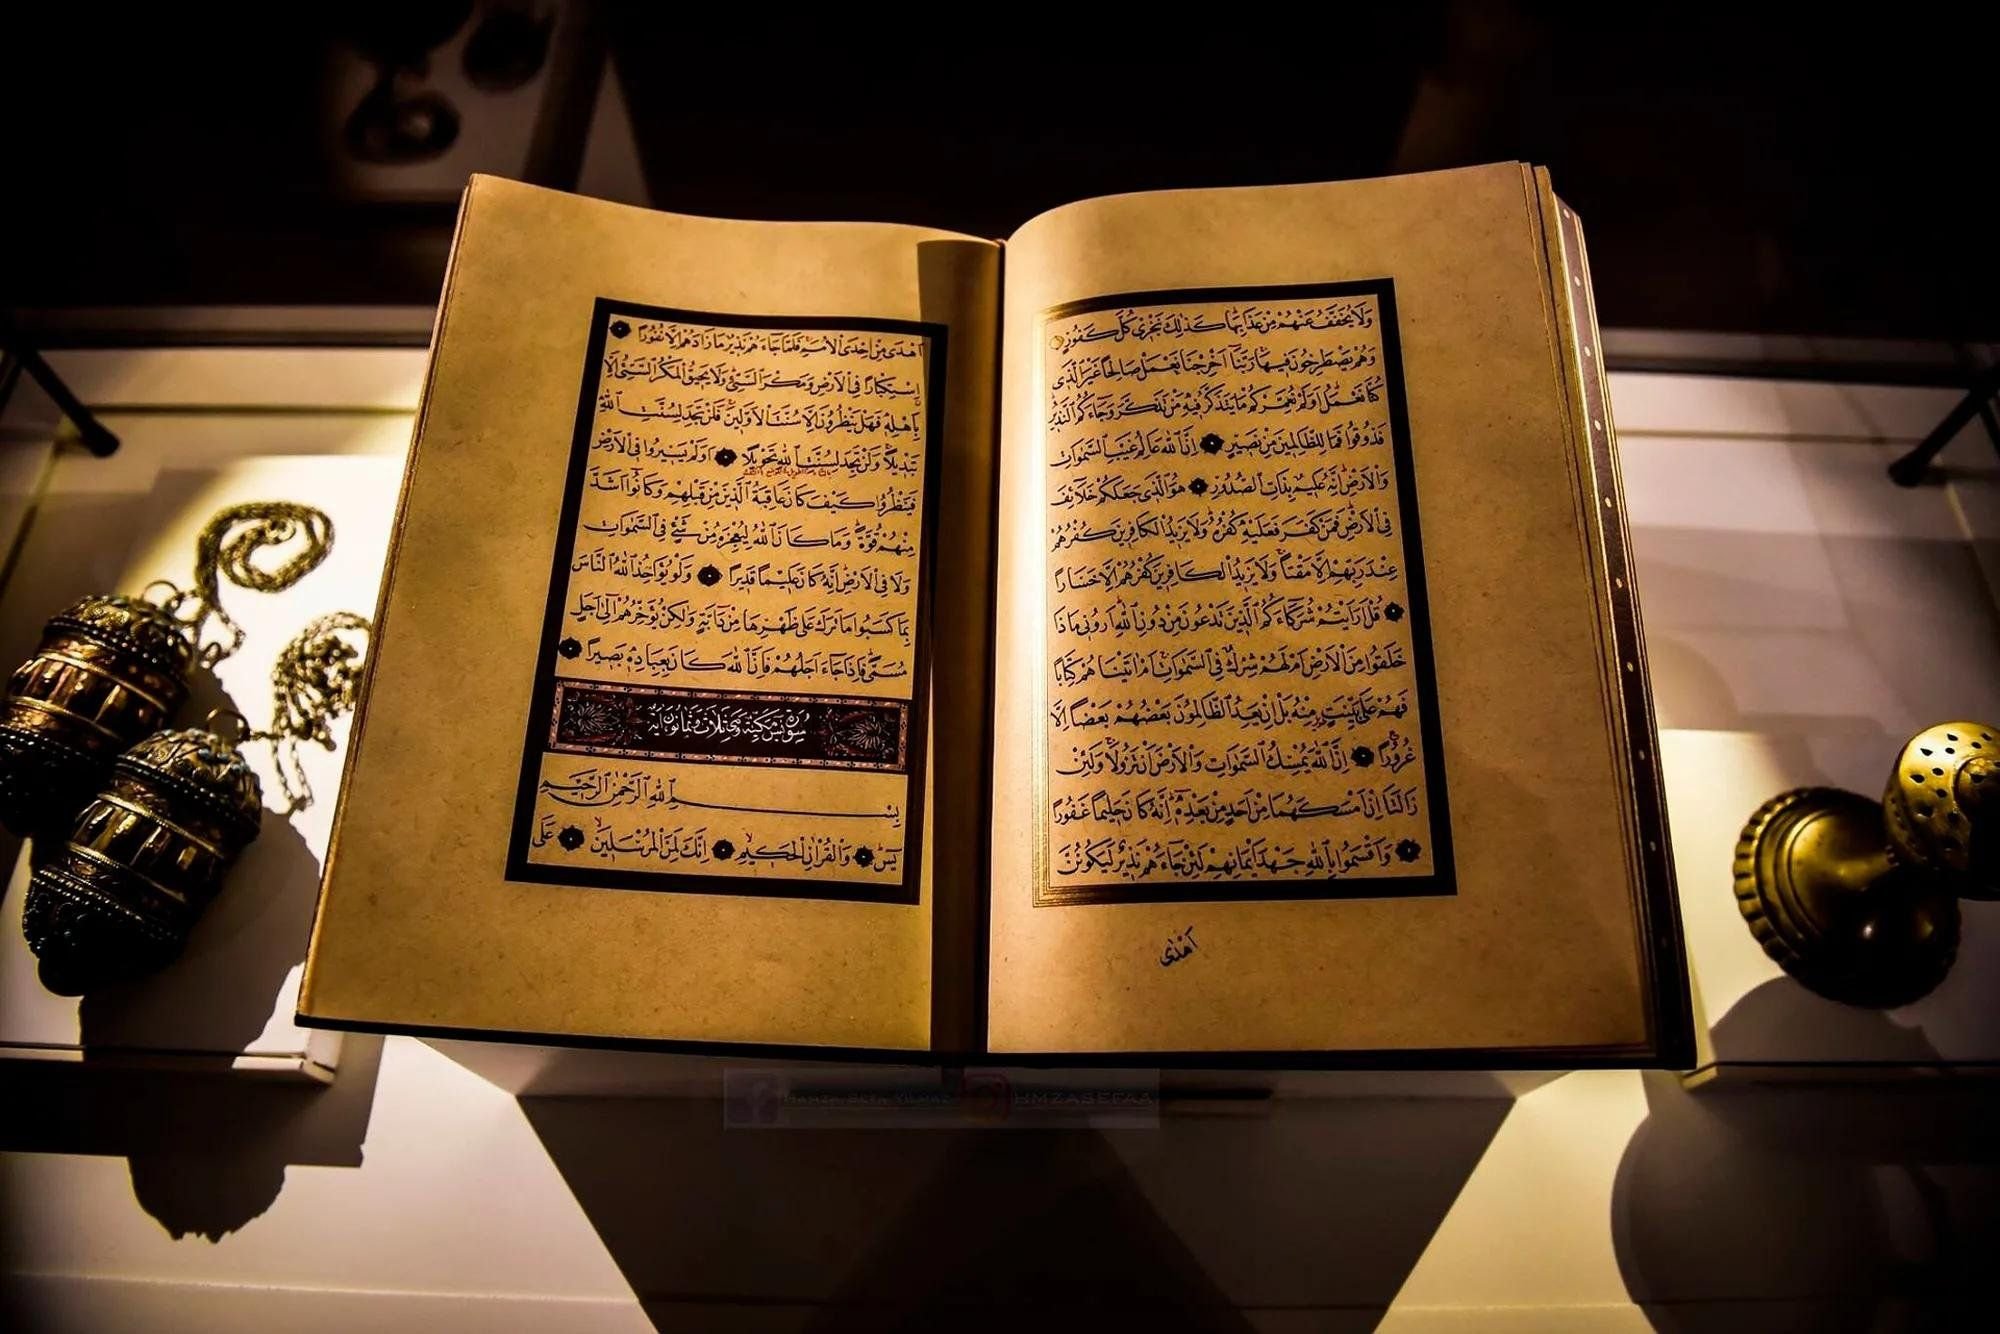 وَلَا يُخَفَّفُ عَنْهُمْ مِنْ عَذَابِهَا كَذٰلِكَ نَجْزِى كُلَّ كَفُورٍ
وَهُمْ يَصْطَرِخُونَ فِيهَا رَبَّنَا اَخْرِجْنَا نَعْمَلْ صَالِحًا غَيْرَ الَّذِى
كُنَّا نَعْمَلُ اَوَلَمْ نُعَمِّرْكُمْ مَا يَتَذَكَّرُ فِيهِ مَنْ تَذَكَّرَ وَجَاءَكُمُ النَّذِيرُ
فَذُوقُوا فَمَا لِلظَّالِمِينَ مِنْ نَصِيرٍ اِنَّ اللّٰهَ عَالِمُ غَيْبِ السَّمٰوَاتِ
وَالْاَرْضِ اِنَّهُ عَلِيمٌ بِذَاتِ الصُّدُورِ هُوَ الَّذِى جَعَلَكُمْ خَلَائِفَ
فِى الْاَرْضِ فَمَنْ كَفَرَ فَعَلَيْهِ كُفْرُهُ وَلَا يَزِيدُ الْكَافِرِينَ كُفْرُهُمْ
عِنْدَ رَبِّهِمْ اِلَّا مَقْتًا وَلَا يَزِيدُ الْكَافِرِينَ كُفْرُهُمْ اِلَّا خَسَارًا
قُلْ اَرَاَيْتُمْ شُرَكَاءَكُمُ الَّذِينَ تَدْعُونَ مِنْ دُونِ اللّٰهِ اَرُونِى مَاذَا
خَلَقُوا مِنَ الْاَرْضِ اَمْ لَهُمْ شِرْكٌ فِى السَّمٰوَاتِ اَمْ اٰتَيْنَاهُمْ كِتَابًا
فَهُمْ عَلٰى بَيِّنَتٍ مِنْهُ بَلْ اِنْ يَعِدُ الظَّالِمُونَ بَعْضُهُمْ بَعْضًا اِلَّا
غُرُورًا اِنَّ اللّٰهَ يُمْسِكُ السَّمٰوَاتِ وَالْاَرْضَ اَنْ تَزُولَا وَلَئِنْ
زَالَتَا اِنْ اَمْسَكَهُمَا مِنْ اَحَدٍ مِنْ بَعْدِهِ اِنَّهُ كَانَ حَلِيمًا غَفُورًا
وَاَقْسَمُوا بِاللّٰهِ جَهْدَ اَيْمَانِهِمْ لَئِنْ جَاءَهُمْ نَذِيرٌ لَيَكُونُنَّ
اَهْدٰى
اَهْدٰى مِنْ اِحْدَى الْاُمَمِ فَلَمَّا جَاءَهُمْ نَذِيرٌ مَا زَادَهُمْ اِلَّا نُفُورًا
اِسْتِكْبَارًا فِى الْاَرْضِ وَمَكْرَ السَّيِّئِ وَلَا يَحِيقُ الْمَكْرُ السَّيِّئُ اِلَّا
بِاَهْلِهِ فَهَلْ يَنْظُرُونَ اِلَّا سُنَّتَ الْاَوَّلِينَ فَلَنْ تَجِدَ لِسُنَّتِ اللّٰهِ
تَبْدِيلًا وَلَنْ تَجِدَ لِسُنَّتِ اللّٰهِ تَحْوِيلًا اَوَلَمْ يَسِيرُوا فِى الْاَرْضِ
فَيَنْظُرُوا كَيْفَ كَانَ عَاقِبَةُ الَّذِينَ مِنْ قَبْلِهِمْ وَكَانُوا اَشَدَّ
مِنْهُمْ قُوَّةً وَمَا كَانَ اللّٰهُ لِيُعْجِزَهُ مِنْ شَىْءٍ فِى السَّمٰوَاتِ
وَلَا فِى الْاَرْضِ اِنَّهُ كَانَ عَلِيمًا قَدِيرًا وَلَوْ يُؤَاخِذُ اللّٰهُ النَّاسَ
بِمَا كَسَبُوا مَا تَرَكَ عَلٰى ظَهْرِهَا مِنْ دَابَّةٍ وَلٰكِنْ يُؤَخِّرُهُمْ اِلٰى اَجَلٍ
مُسَمًّى فَاِذَا جَاءَ اَجَلُهُمْ فَاِنَّ اللّٰهَ كَانَ بِعِبَادِهِ بَصِيرًا
سورة يس مكية وهى ثلاث وثمانون آية
بِسْمِ اللّٰهِ الرَّحْمٰنِ الرَّحِيمِ
يٰسٓ وَالْقُرْاٰنِ الْحَكِيمِ اِنَّكَ لَمِنَ الْمُرْسَلِينَ عَلٰى
HAMZA SEFA YILMAZ HMZASEFAA